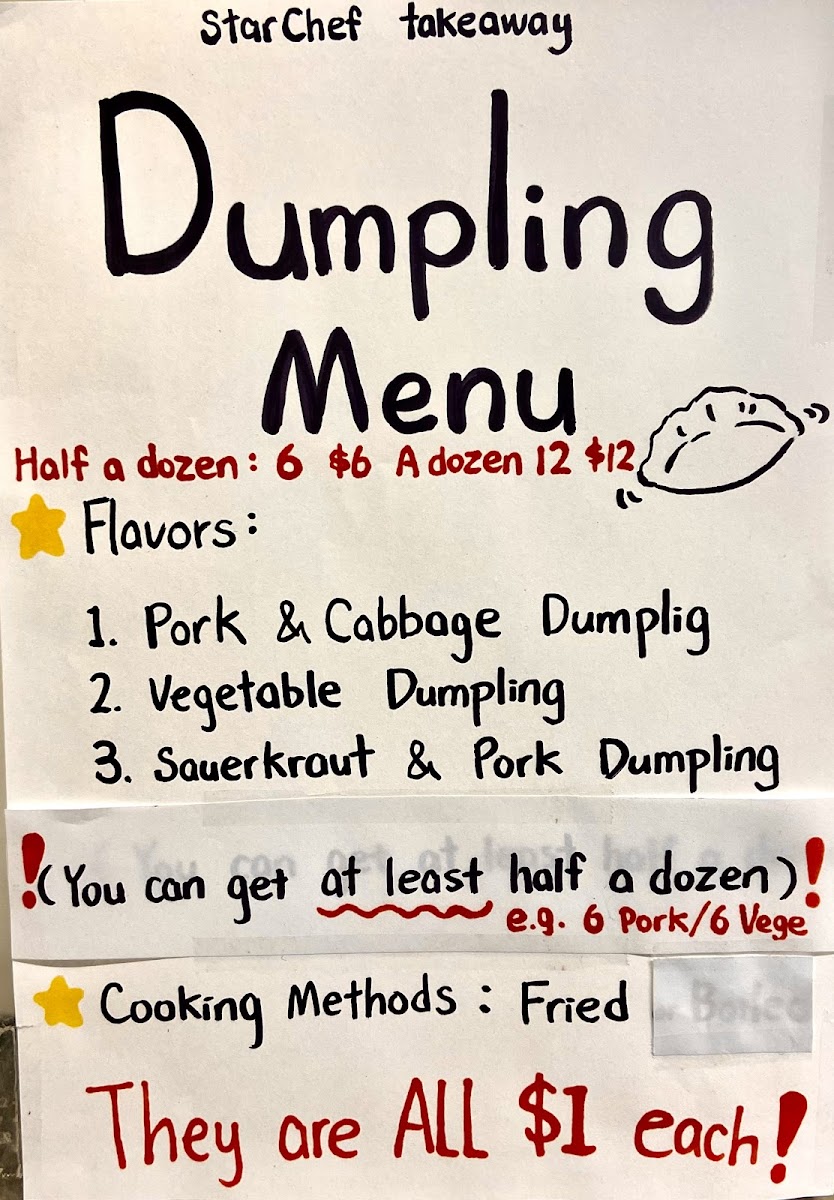 StarChef takeaway
Dumpling
Menu
Half a dozen: 6 $6 A dozen 12 $12
Flavors:
1. Pork & Cabbage Dumplig
2. Vegetable Dumpling
3. Sauerkraut & Pork Dumpling
!(You can get at least half a dozen)!
e.g. 6 Pork/6 Vege
Cooking Methods: Fried
They are ALL $1 each!